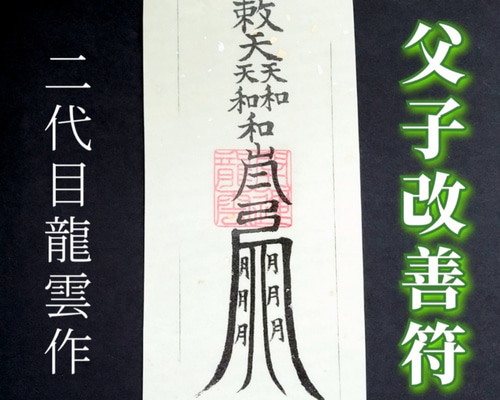 父子改善符
敕
天
天天
天和
和
和
弓
月月
月月
月月
二代目龍雲作